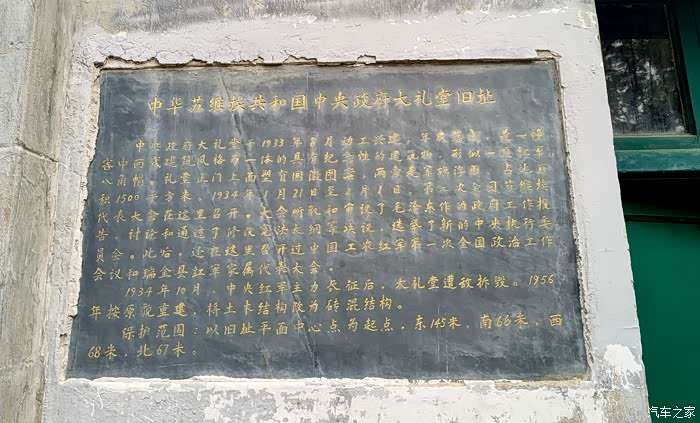 中华苏维埃共和国中央政府大礼堂旧址
中央政府大礼堂于1933年8月动工兴建，年底落成，是一幢
容中西式建筑风格为一体的具有纪念性的建筑物，形似一顶红军
八角帽。礼堂正门上面塑有国徽图案，两旁是浮雕，占地面
积1500平方米。1934年1月21日至2月1日，第二次全国苏维埃
代表大会在这里召开。大会听取和审议了毛泽东作的政府工作报
告，讨论和通过了修改宪法决议，选举了新的中央执行委
员会。此后，还在这里召开过中国工农红军第一次全国政治工作
会议和瑞金县红军家属代表大会。
1934年10月，中央红军主力长征后，大礼堂遭敌拆毁。1956
年按原貌重建，将土木结构改为砖混结构。
保护范围：以旧址平面中心点为起点，东145米，南66米，西
68米，北67米。
汽车之家